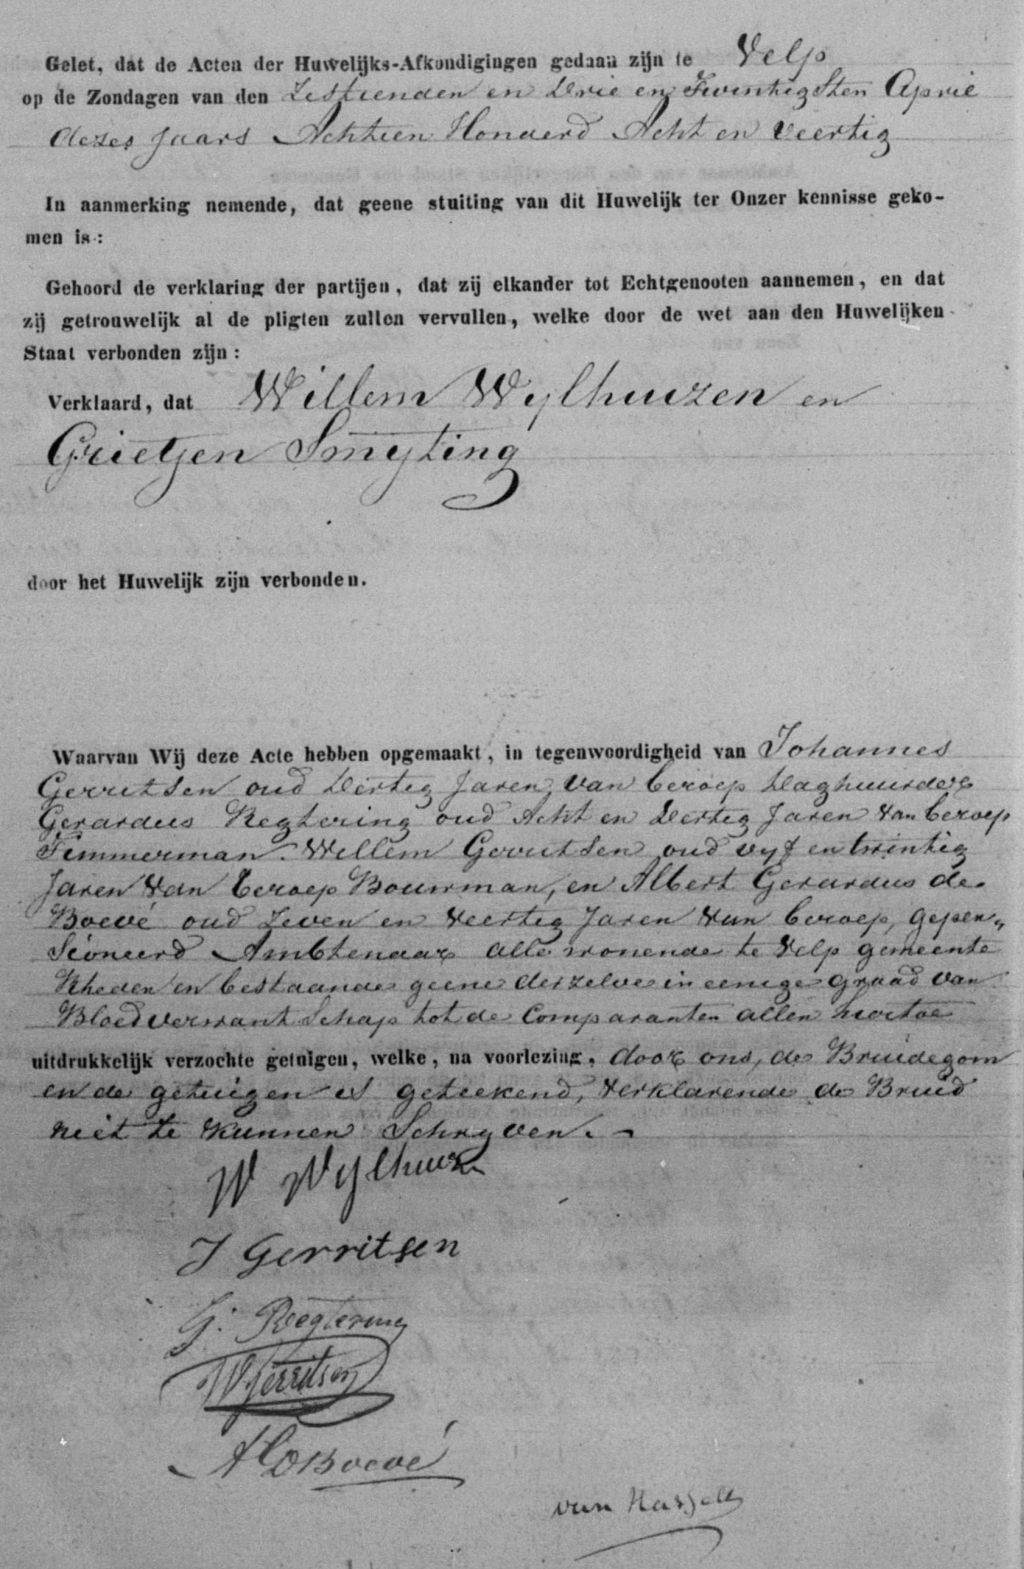 Gelet, dat de Acten der Huwelijks-Afkondigingen gedaan zijn te Velp
op de Zondagen van den Zestienden en Drie en Twintigsten April
dezes Jaars Achtien Honderd Acht en Veertig
In aanmerking nemende, dat geene stuiting van dit Huwelijk ter Onzer kennisse geko-
men is:
Gehoord de verklaring der partijen, dat zij elkander tot Echtgenooten aannemen, en dat
zij getrouwelijk al de pligten zullen vervullen, welke door de wet aan den Huwelijken
Staat verbonden zijn:
Verklaard, dat Willem Wylhuizen en
Grietjen Smyting
door het Huwelijk zijn verbonden.
Waarvan Wij deze Acte hebben opgemaakt, in tegenwoordigheid van Johannes
Gerritsen oud Dertig Jaren, van beroep Daghuurder
Gerardus Regtering oud Acht en Dertig Jaren van beroep
Timmerman. Willem Gerritsen oud vyf en twintig
Jaren van beroep Bouwman, en Albert Gerardus de
Boevé oud Zeven en Veertig Jaren van beroep, gepen„
sioneerd Ambtenaar alle wonende te Velp gemeente
Rheden en bestaande geene derzelve in eenige graad van
Bloedverwantschap tot de Comparanten allen hiertoe
uitdrukkelijk verzochte getuigen, welke, na voorlezing, door ons, de Bruidegom
en de getuigen is geteekend, verklarende de Bruid
niet te kunnen Schryven. -
W Wylhuiz
J Gerritsen
G. Regtering
W Gerritsen
A G D Boevé
van Hasselt